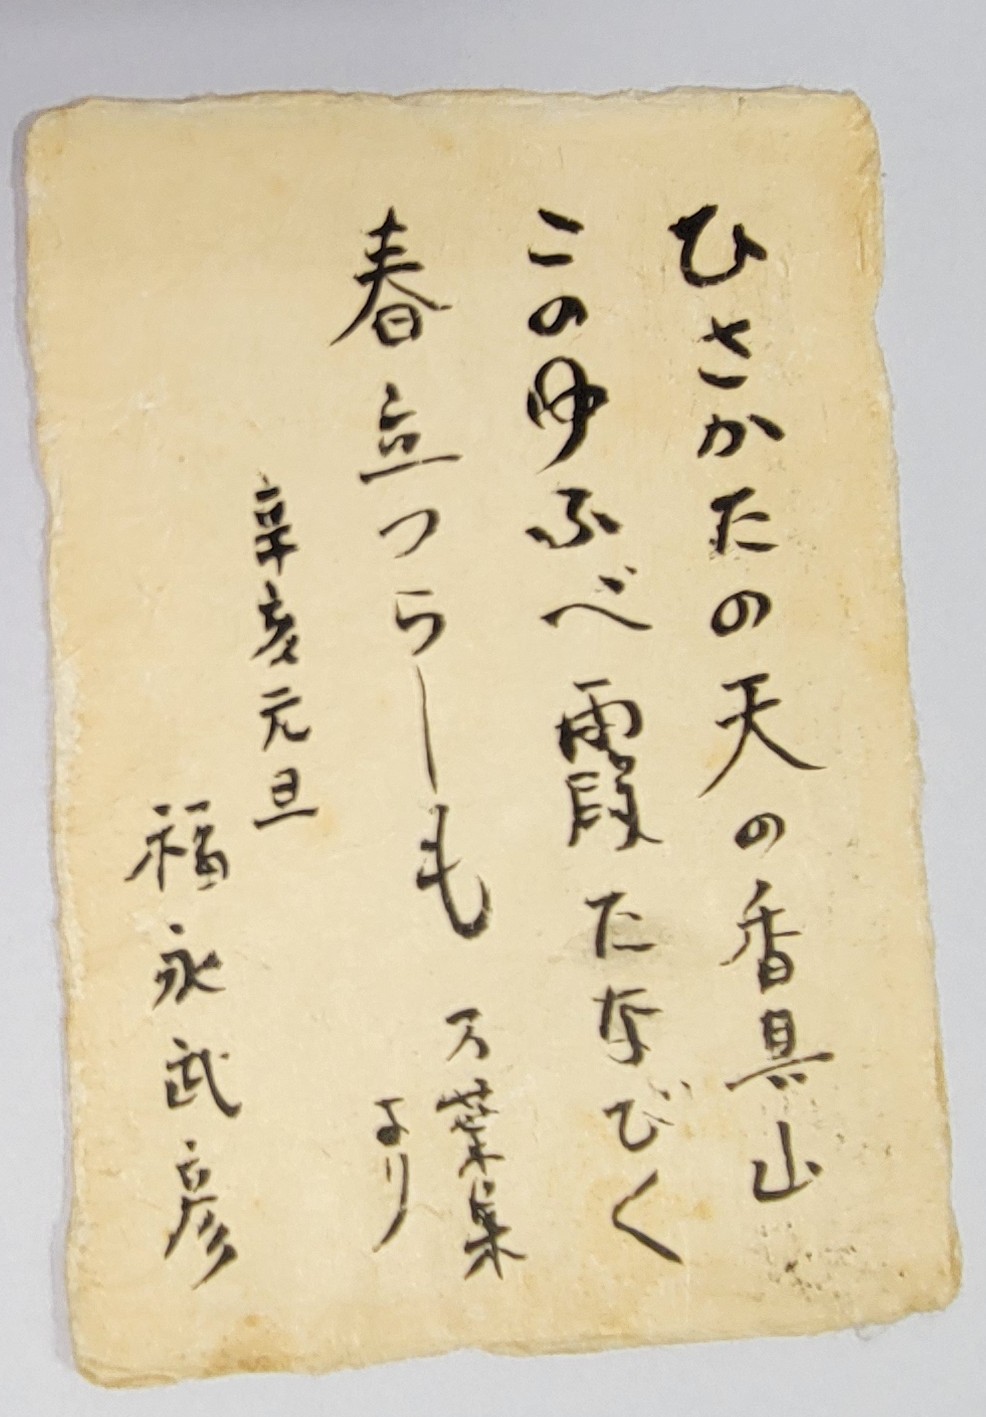 ひさかたの天の香具山
このゆふべ霞たなびく
春立つらしも
万葉集
より
辛亥元旦
福永武彦